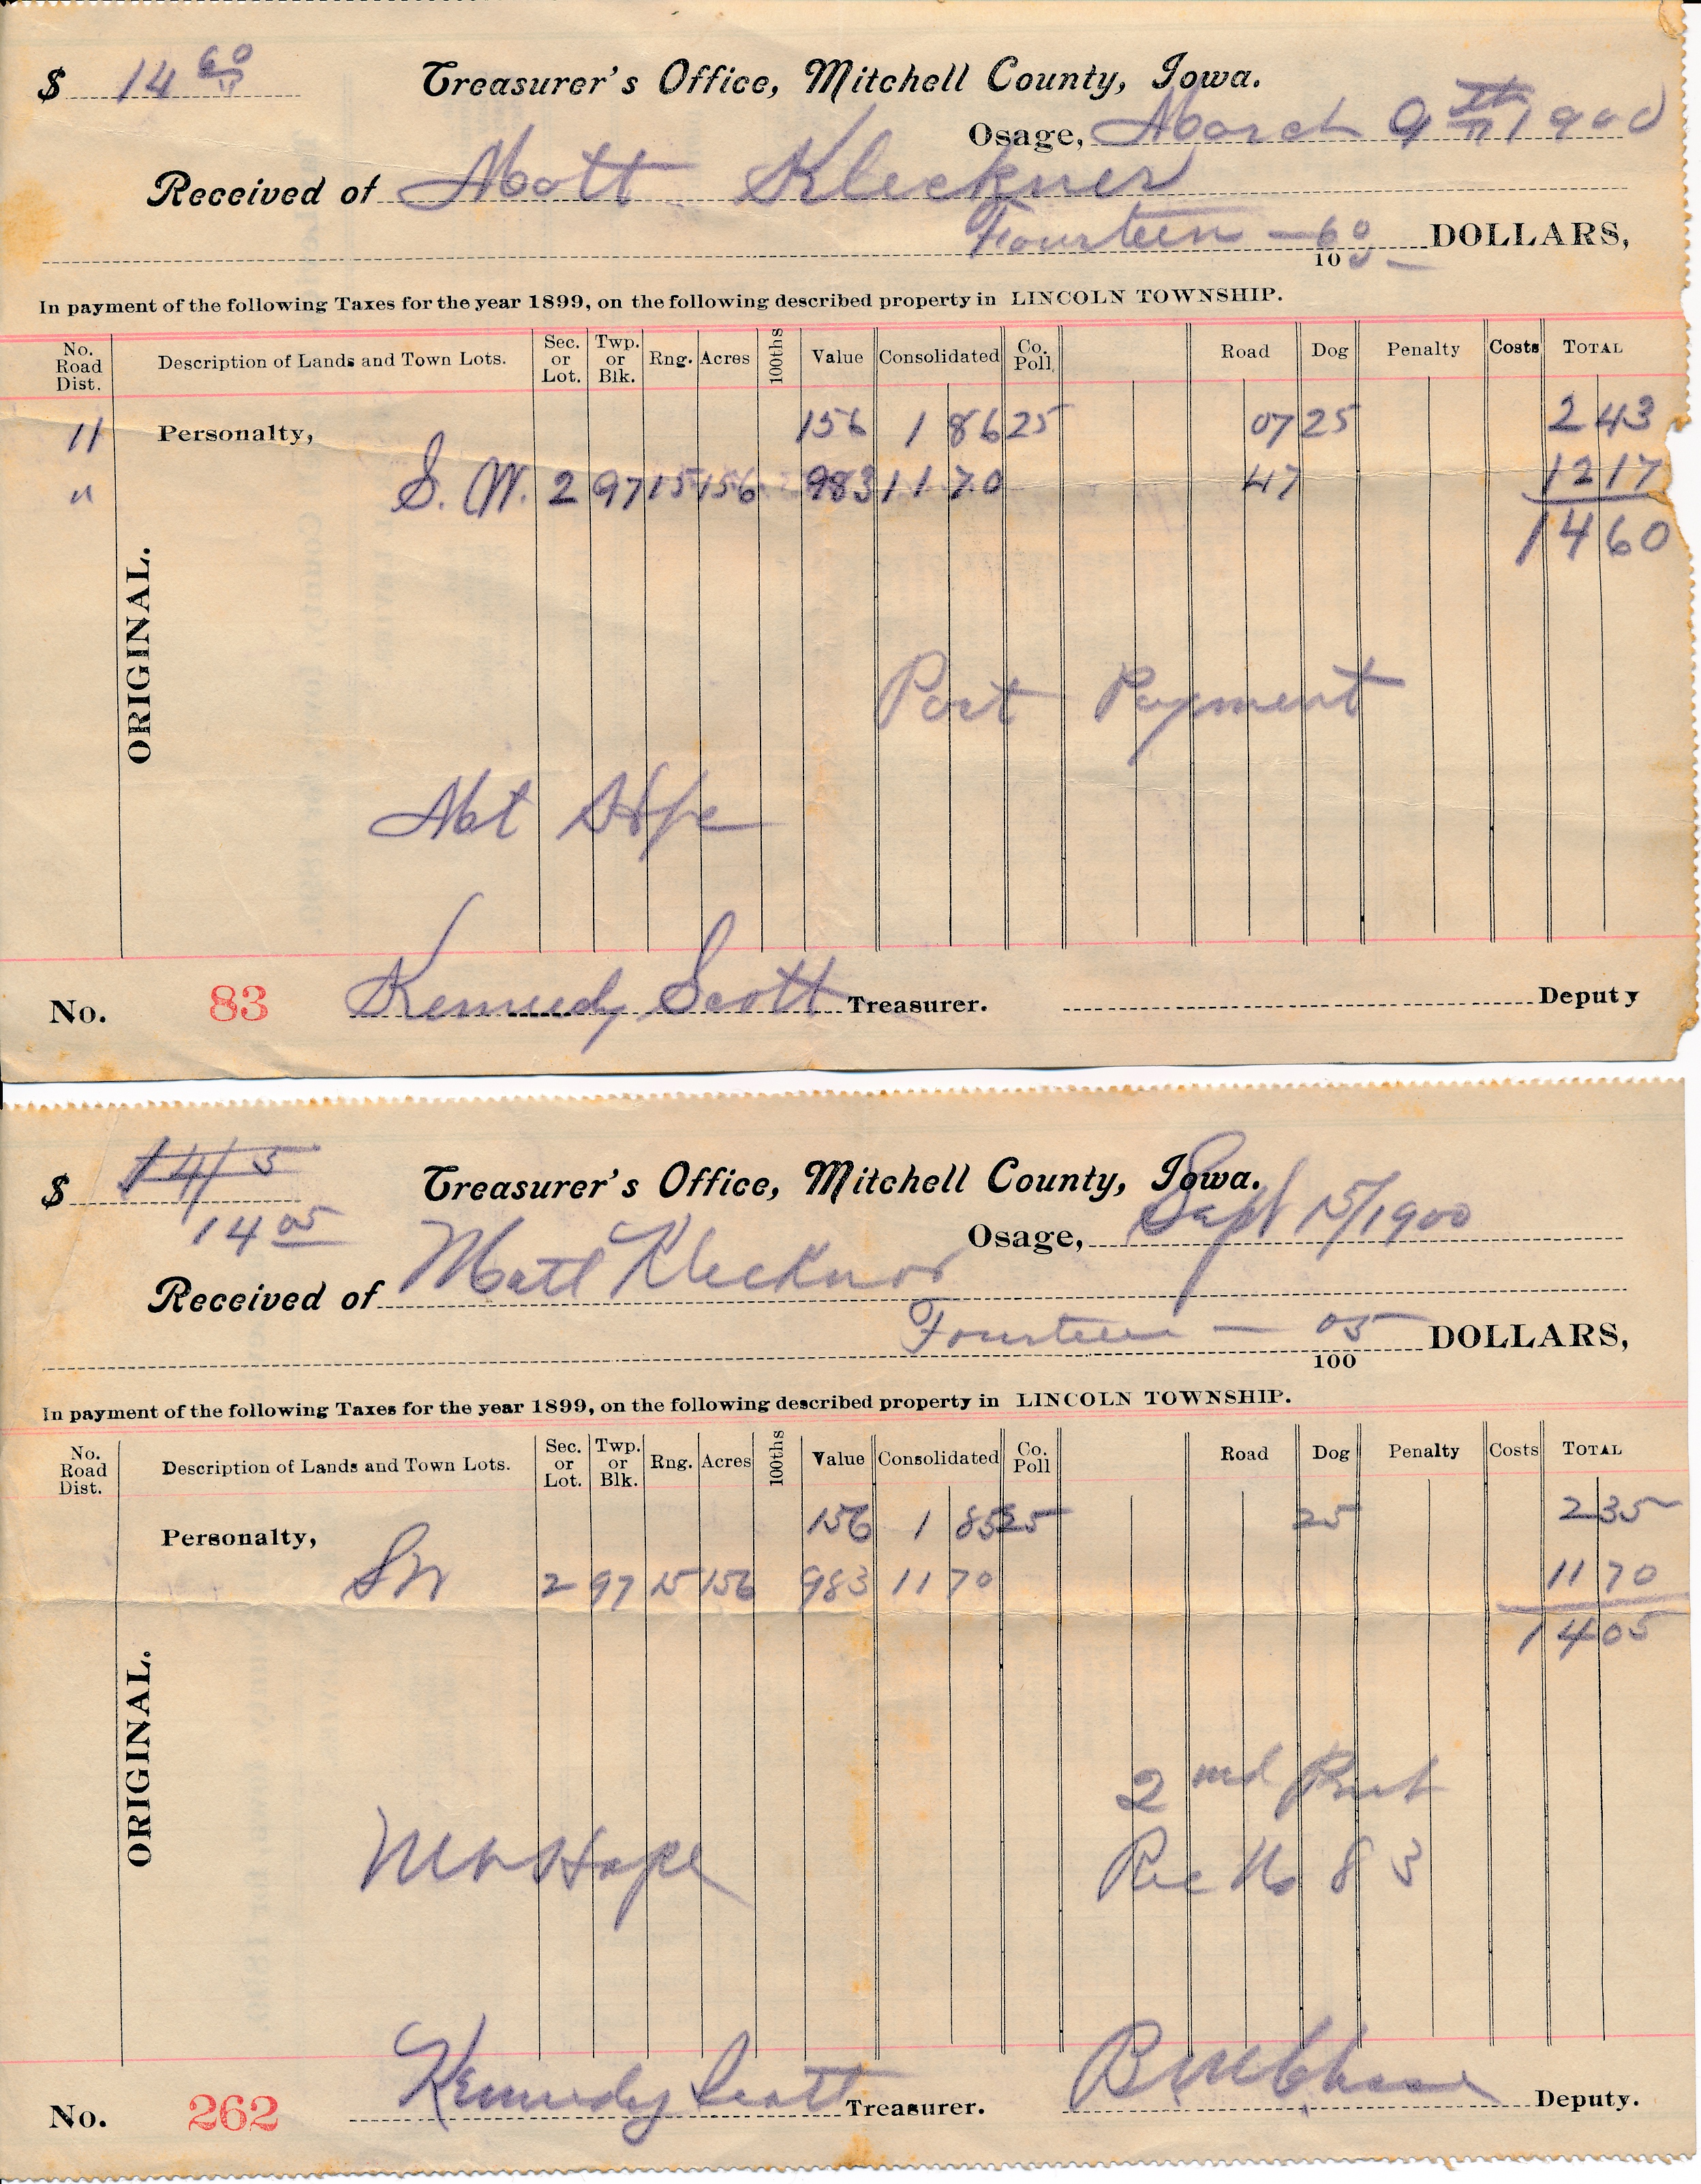 $ 14 60/11 Treasurer's Office, Mitchell County, Iowa.
Osage, March 9th 1900
Received of Matt Kleckner
Fourteen — 60/100 DOLLARS,
In payment of the following Taxes for the year 1899, on the following described property in LINCOLN TOWNSHIP.
No. Road Dist. Description of Lands and Town Lots. Sec. or Lot. Twp. or Blk. Rng. Acres 100ths Value Consolidated Co. Poll Road Dog Penalty Costs TOTAL
11 Personalty, 156 1 86 25 07 25 2 43
" S. W. 2 97 15 156 983 11 70 47 12 17
14 60
ORIGINAL.
Part Payment
Mt Hope
No. 83 Kennedy Scott Treasurer. Deputy
$ 14 15 Treasurer's Office, Mitchell County, Iowa.
14 05 Osage, Sept 15/1900
Received of Matt Kleckner
Fourteen — 05/100 DOLLARS,
In payment of the following Taxes for the year 1899, on the following described property in LINCOLN TOWNSHIP.
No. Road Dist. Description of Lands and Town Lots. Sec. or Lot. Twp. or Blk. Rng. Acres 100ths Value Consolidated Co. Poll Road Dog Penalty Costs TOTAL
Personalty, 156 1 85 25 25 2 35
SW 2 97 15 156 983 11 70 11 70
14 05
ORIGINAL.
2nd Part
Mt Hope Rec No 83
No. 262 Kennedy Scott Treasurer. Deputy.